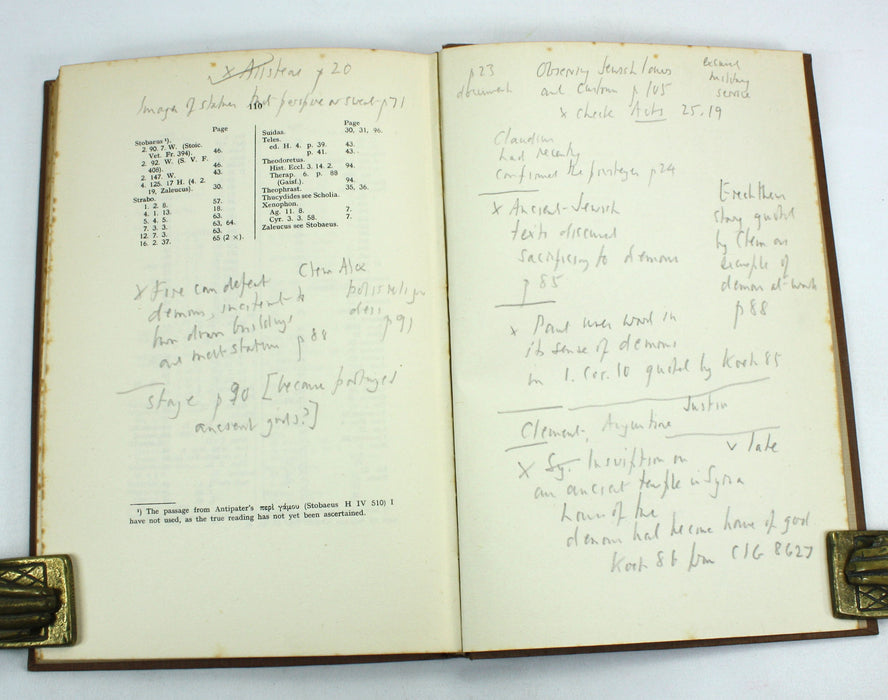 x Aristeas p 20
Images of statues that perspire or sweat p 71
110
Page
Stobaeus ¹).
2. 90. 7. W. (Stoic.
Vet. Fr. 394). 46.
2. 92. W. (S. V. F.
408). 46.
2. 147. W. 43.
4. 125. 17 H. (4. 2.
19, Zaleucus). 30.
Strabo.
1. 2. 8. 57.
4. 1. 13. 18.
5. 4. 5. 63, 64.
7. 3. 3. 63.
12. 7. 3.
16. 2. 37. 65 (2 ×).
Page
Suidas. 30, 31, 96.
Teles.
ed. H. 4. p. 39. 43.
p. 41. 43.
Theodoretus.
Hist. Eccl. 3. 14. 2. 94.
Therap. 6. p. 88
(Gaisf.). 94.
Theophrast. 35, 36.
Thucydides see Scholia.
Xenophon.
Ag. 11. 8. 7.
Cyr. 3. 3. 58. 7.
Zaleucus see Stobaeus.
x Fire can defeat
demons, incitement to
burn down buildings
and melt statues p 88
Clem Alex
p 91
stage p 90 [because portrays
ancient gods?]
¹) The passage from Antipater's περὶ γάμου (Stobaeus H IV 510) I
have not used, as the true reading has not yet been ascertained.
p 23
document
Observing Jewish laws
and custom p 105
military
service
x check Acts 25.19
Claudius
had recently
confirmed the privileges p 24
x Ancient-Jewish
texts discussed
sacrificing to demons
p 85
Erectheus
story quoted
by Clem as
example of
demon at work
p 88
x Paul uses word in
its sense of demons
in 1. Cor. 10 quoted by Koch 85
Clement, Augustine Justin
v late
x Sy. Inscription on
an ancient temple in Syria
house of the
demons had become house of god
Koch 86 from CIG 8627